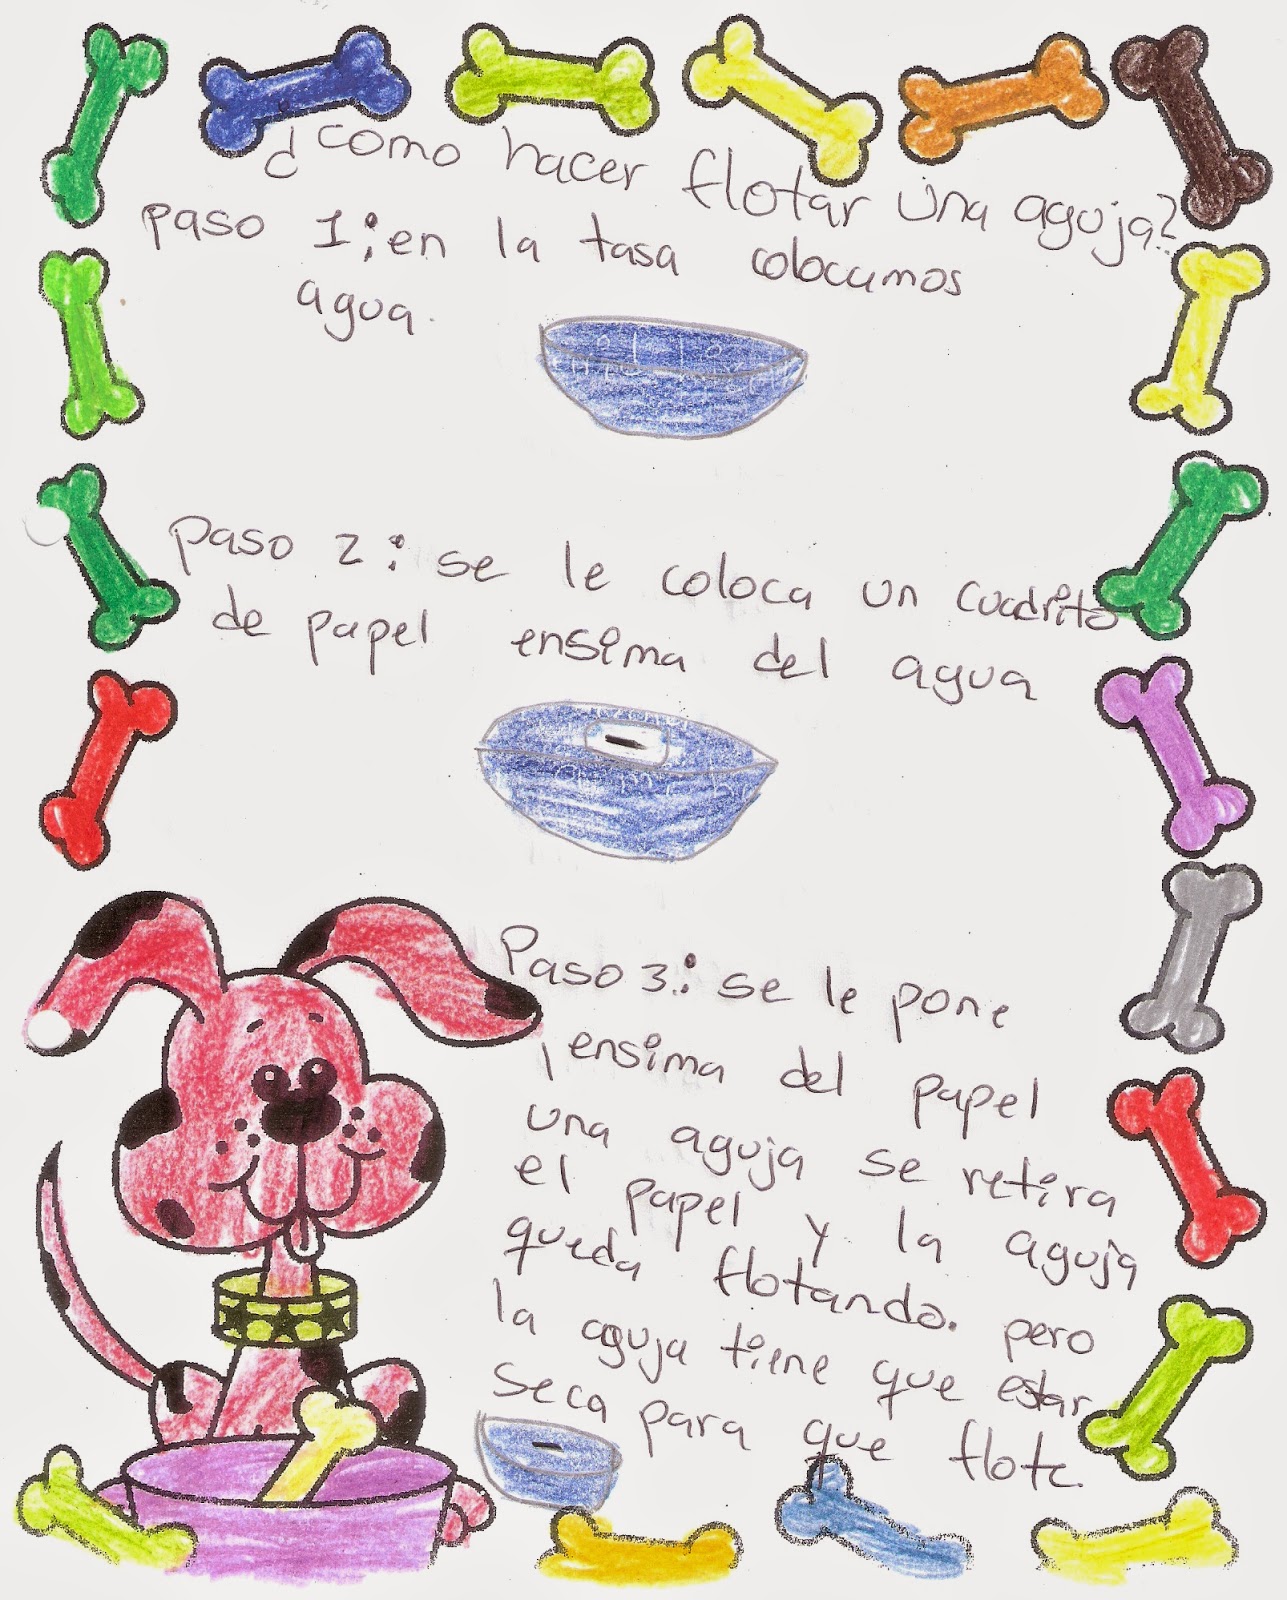 ¿como hacer flotar una aguja?
paso 1: en la tasa colocamos
agua.
paso 2: se le coloca un cuadrito
de papel ensima del agua
Paso 3.: se le pone
ensima del papel
una aguja se retira
el papel y la aguja
queda flotando. pero
la aguja tiene que estar
seca para que flote